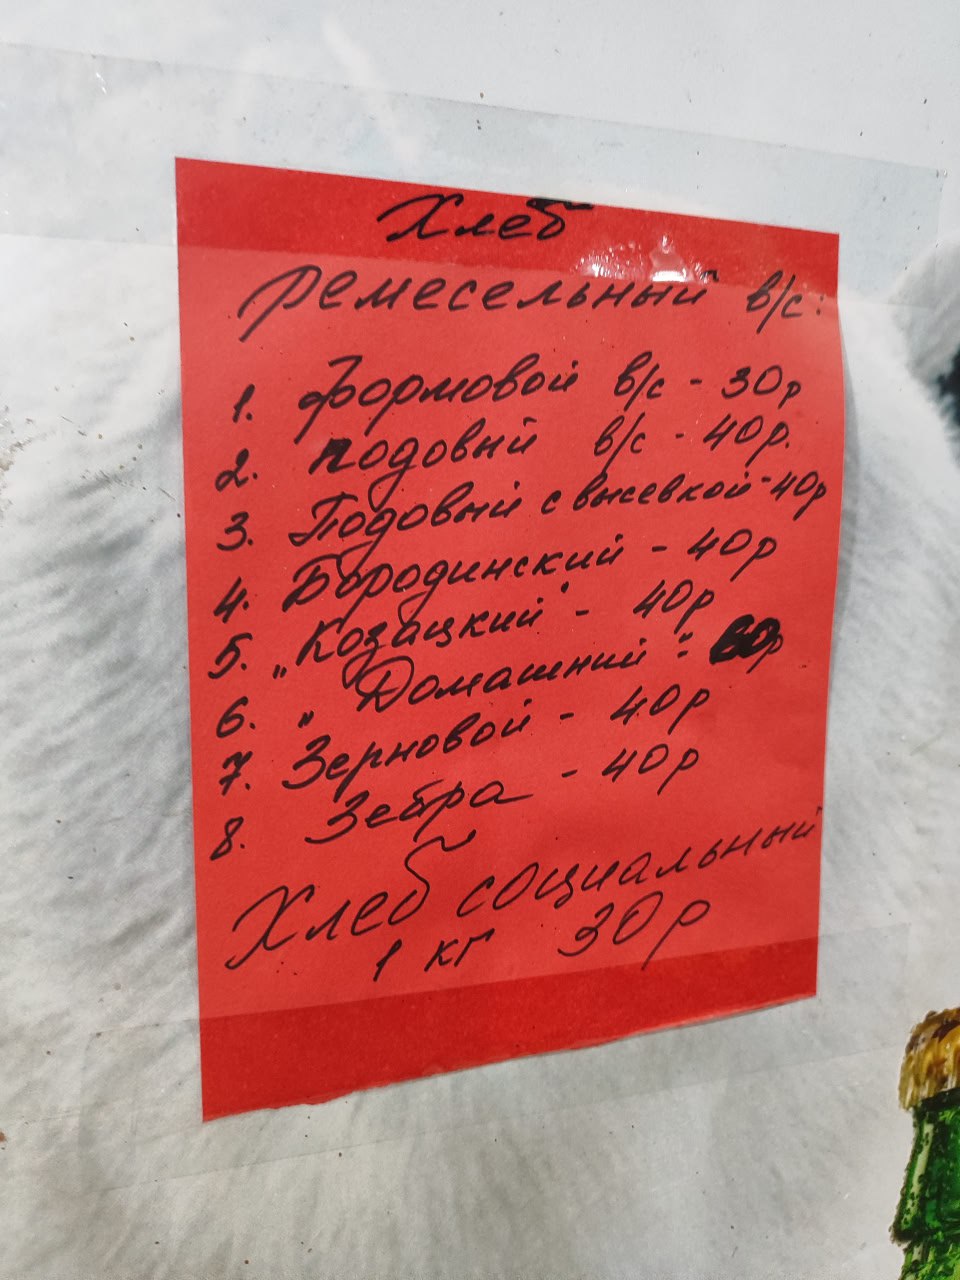 Хлеб
ремесельный в/с:
1. Формовой в/с - 30р
2. Подовый в/с - 40р.
3. Подовый с высевкой - 40р
4. Бородинский - 40р
5. "Козацкий" - 40р
6. "Домашний" -
7. Зерновой - 40р
8. Зебра - 40р
Хлеб социальный
1 кг 30р